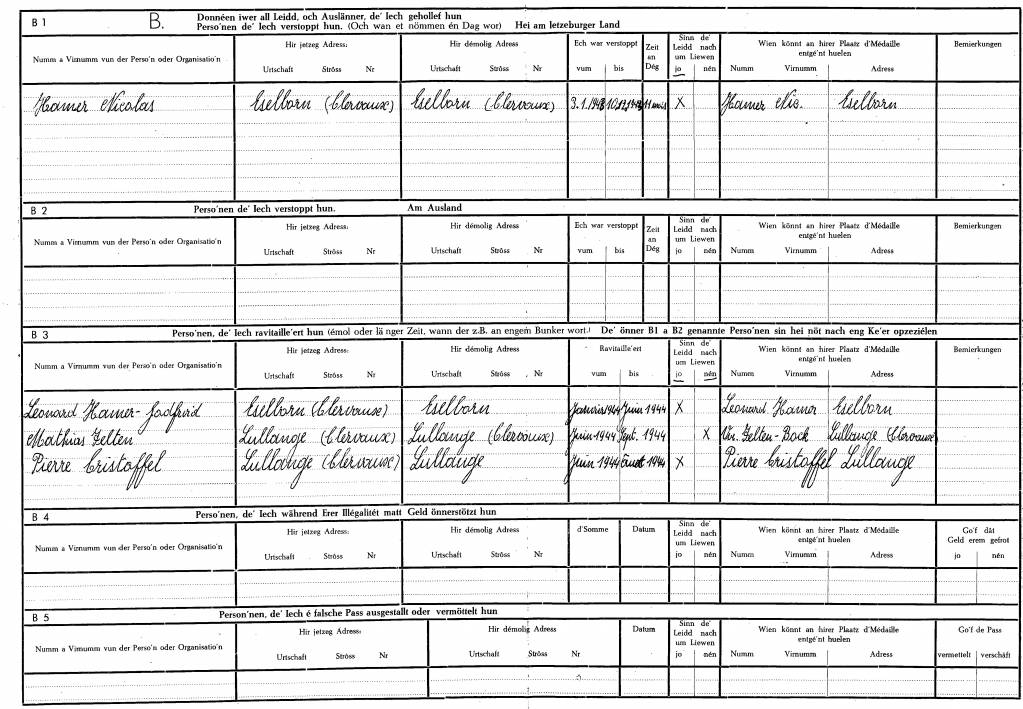 B 1
B.
Donnéen iwer all Leidd, och Auslänner, de' Iech gehollef hun
Perso'nen de' Iech verstoppt hun. (Och wan et nömmen én Dag wor) Hei am letzeburger Land
Numm a Virnumm vun der Perso'n oder Organisatio'n
Hir jetzeg Adress:
Urtschaft Ströss Nr
Hir démolig Adress
Urtschaft Ströss Nr
Ech war verstoppt
vum bis
Zeit
an
Dég
Sinn de'
Leidd nach
um Liewen
jo nén
Wien könnt an hirer Plaatz d'Médaille
entgé'nt huelen
Numm Virnumm Adress
Bemierkungen
Hamer Nicolas Eselborn (Clervaux) Eselborn (Clervaux) 3.1.1943 11 mois X Hamer Nic. Eselborn
B 2
Perso'nen de' Iech verstoppt hun. Am Ausland
Numm a Virnumm vun der Perso'n oder Organisatio'n
Hir jetzeg Adress:
Urtschaft Ströss Nr
Hir démolig Adress
Urtschaft Ströss Nr
Ech war verstoppt
vum bis
Zeit
an
Dég
Sinn de'
Leidd nach
um Liewen
jo nén
Wien könnt an hirer Plaatz d'Médaille
entgé'nt huelen
Numm Virnumm Adress
Bemierkungen
B 3
Perso'nen, de' Iech ravitaille'ert hun (émol oder länger Zeit, wann der z.B. an engem Bunker wort.) De' önner B1 a B2 genannte Perso'nen sin hei nöt nach eng Ke'er opzeziélen
Numm a Virnumm vun der Perso'n oder Organisatio'n
Hir jetzeg Adress:
Urtschaft Ströss Nr
Hir démolig Adress
Urtschaft Ströss Nr
Ravitaille'ert
vum bis
Sinn de'
Leidd nach
um Liewen
jo nén
Wien könnt an hirer Plaatz d'Médaille
entgé'nt huelen
Numm Virnumm Adress
Bemierkungen
Leonard Hamer- Eselborn (Clervaux) Eselborn Janvier 1944 Juin 1944 X Leonard Hamer Eselborn
Mathias Zelten Lullange (Clervaux) Lullange (Clervaux) Juin 1944 Sept. 1944 X Zelten-Bock Lullange (Clervaux)
Pierre Cristoffel Lullange (Clervaux) Lullange Juin 1944 1944 X Pierre Cristoffel Lullange
B 4
Perso'nen, de' Iech während Erer Illégalitét matt Geld önnerstötzt hun
Numm a Virnumm vun der Perso'n oder Organisatio'n
Hir jetzeg Adress:
Urtschaft Ströss Nr
Hir démolig Adress
Urtschaft Ströss Nr
d'Somme
Datum
Sinn de'
Leidd nach
um Liewen
jo nén
Wien könnt an hirer Plaatz d'Médaille
entgé'nt huelen
Numm Virnumm Adress
Go'f dât
Geld erem gefrot
jo nén
B 5
Person'nen, de' Iech é falsche Pass ausgestallt oder vermöttelt hun
Numm a Virnumm vun der Perso'n oder Organisatio'n
Hir jetzeg Adress:
Urtschaft Ströss Nr
Hir démolig Adress
Urtschaft Ströss Nr
Datum
Sinn de'
Leidd nach
um Liewen
jo nén
Wien könnt an hirer Plaatz d'Médaille
entgé'nt huelen
Numm Virnumm Adress
Go'f de Pass
vermettelt verschäft